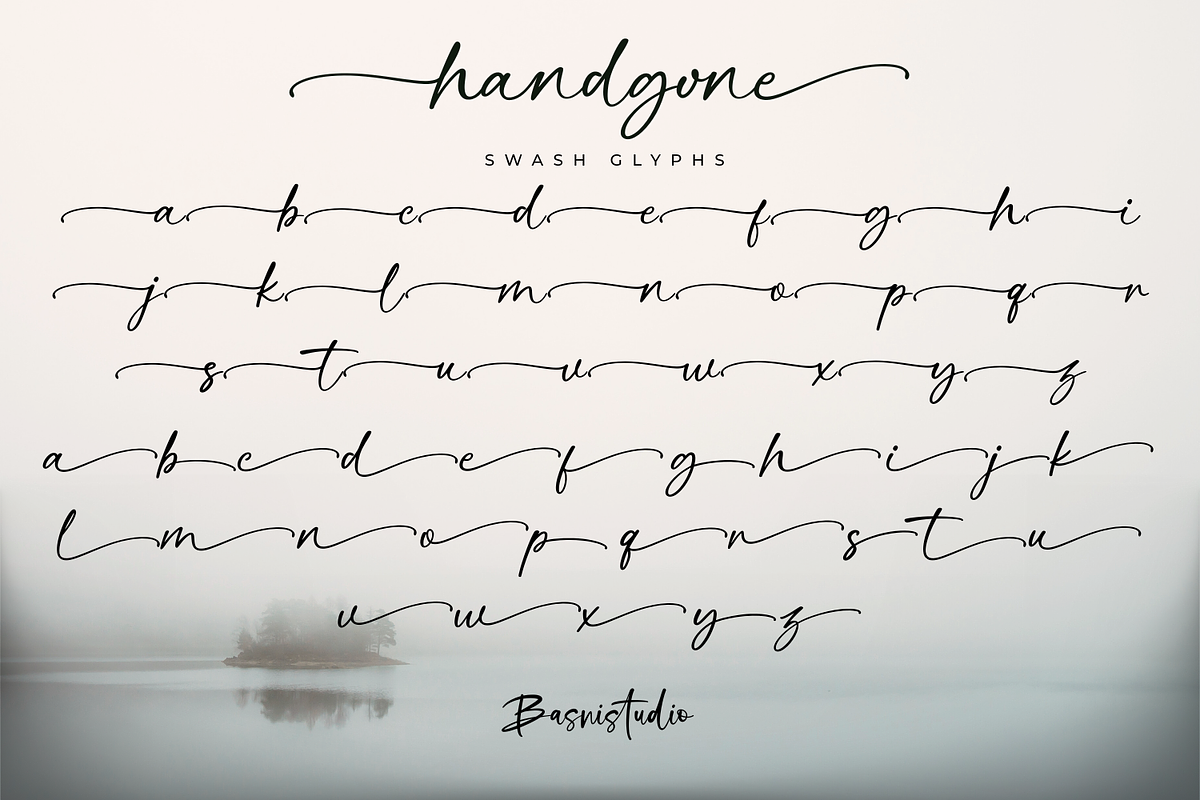 handgone
SWASH GLYPHS
a b c d e f g h i
j k l m n o p q r
s t u v w x y z
a b c d e f g h i j k
l m n o p q r s t u
v w x y z
Basnistudio